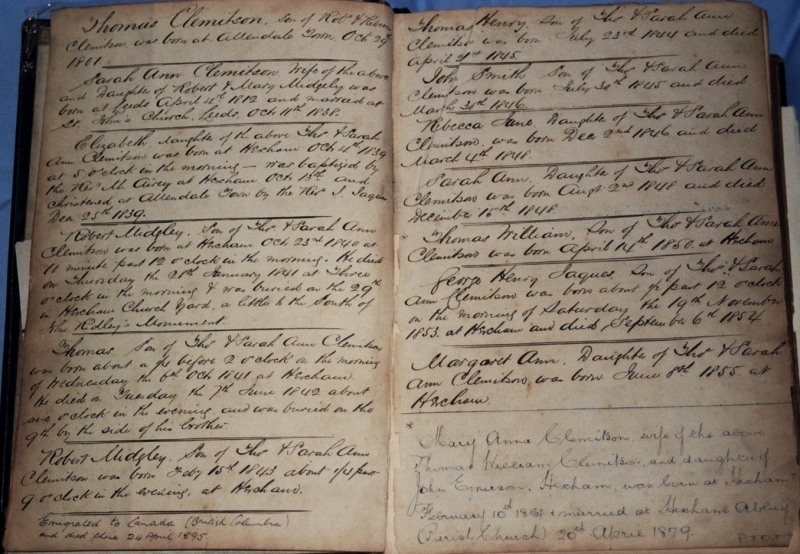 Thomas Clemitson, Son of Robt &
Clemitson was born at Allendale Town Oct 29
1801.
Sarah Ann Clemitson Wife of the above
and Daughter of Robert & Mary Midgely was
born at Leeds April 4th 1812 and married at
St. John's Church, Leeds, Oct 11th 1838.
Elizabeth daughter of the above Thos & Sarah
Ann Clemitson was born at Hexham Oct 4th 1839
at 5 o'clock in the morning — was baptized by
the Revd M. Airey at Hexham Oct 13th and
christened at Allendale Town by the Rev J. Jaques
Dec 25th 1839.
Robert Midgley, Son of Thos & Sarah Ann
Clemitson was born at Hexham Oct 23rd 1840 at
11 minute past 12 o'clock in the morning. He died
on Thursday the 28th January 1841 at Three
o'clock in the morning & was buried on the 29th
in Hexham Church Yard, a little to the South of
Ridley's Monument.
Thomas, Son of Thos & Sarah Ann Clemitson
was born about a 1/4 before 2 o'clock on the morning
of Wednesday the 6th Oct 1841 at Hexham
He died on Tuesday the 7th June 1842 about
six o'clock in the evening, and was buried on the
9th by the side of his brother.
Robert Midgley, Son of Thos & Sarah Ann
Clemitson was born Feby 15th 1843 about 1/4 past
9 o'clock in the evening, at Hexham.
Emigrated to Canada (British Columbia)
and died there 24 April 1895.
Thomas Henry, Son of Thos & Sarah Ann
Clemitson was born July 23rd 1844 and died
April 21st 1845.
John Smith Son of Thos & Sarah Ann
Clemitson was born July 30th 1845 and died
March 30th 1846.
Rebecca Jane, Daughter of Thos & Sarah Ann
Clemitson, was born Dec 2nd 1846 and died
March 4th 1848.
Sarah Ann, Daughter of Thos & Sarah Ann
Clemitson was born Augt 2nd 1848 and died
December 15th 1848.
* Thomas William, Son of Thos & Sarah Ann
Clemitson was born April 14th 1850 at Hexham
George Henry Jaques, Son of Thos & Sarah
Ann Clemitson was born about 1/2 past 12 o'clock
on the morning of Saturday the 19th November
1853 at Hexham and died September 6th 1854
Margaret Ann, Daughter of Thos & Sarah
Ann Clemitson, was born June 8th 1855 at
Hexham.
*
Mary Anna Clemitson, wife of the above
Thomas William Clemitson and daughter of
John Emerson, Hexham, was born at Hexham
February 10th & married at Hexham Abbey
(Parish Church) 20th April 1879.
P.T.O.